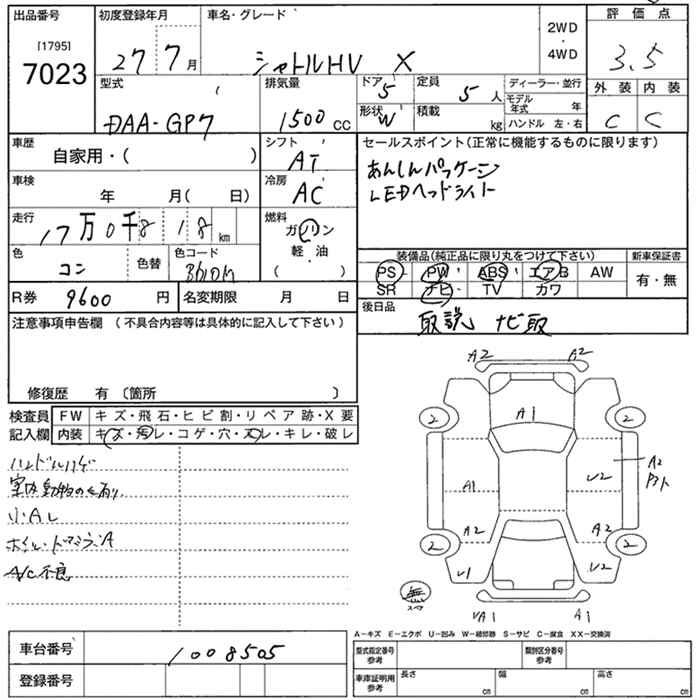 出品番号 初度登録年月 車名・グレード 2WD・4WD 評価点
[1795]
7023 27 7月 シャトルHV X 3.5
型式 排気量 ドア 5 定員 5人 ディーラー・並行 外装 内装
DAA-GP7 1500 CC 形状 W 積載 kg モデル年式 年 C C
ハンドル 左・右
車歴 シフト セールスポイント(正常に機能するものに限ります)
自家用・( ) AT あんしんパッケージ
車検 冷房 LEDヘッドライト
年 月( 日) AC
走行 燃料
17万0千8 18 km ガソリン
色 色替 色コード 軽・油 装備品(純正品に限り丸をつけて下さい) 新車保証書
コン ( ) PS PW ABS エアB AW 有・無
R券 9600円 名変期限 月 日 SR ナビ TV カワ
後日品
注意事項申告欄 (不具合内容等は具体的に記入して下さい) 取説 ナビ取
修復歴 有 〔箇所 〕
A2 A2
検査員 FW キズ・飛石・ヒビ割・リペア跡・X要 2 A1 2
記入欄 内装 キズ・汚レ・コゲ・穴・スレ・キレ・破レ
ハンドルハゲ A1 U2 A2
室内動物の毛有り
小AU
A2 A2
2 2
A/C不良 U1 U2
無
スペア
A1 A1
A-キズ E-エクボ U-凹み W-補修跡 S-サビ C-腐食 XX-交換済
車台番号 1008505 型式指定番号 参考 類別区分番号 参考
登録番号 車庫証明用 参考 長さ cm 幅 cm 高さ cm